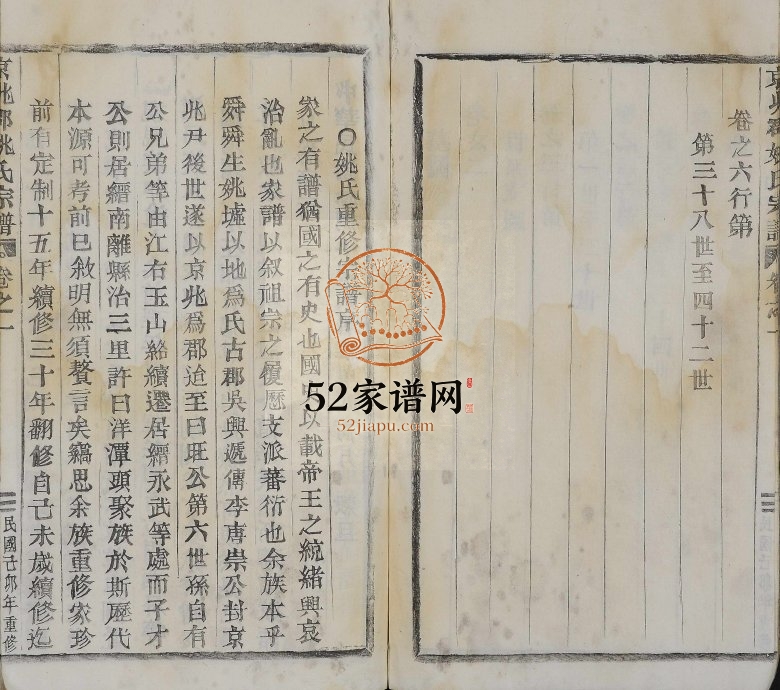 京兆郡姚氏宗譜
卷之六行第
第三十八世至四十二世
姚氏重修宗譜序
家之有譜猶國之有史也國史以載帝王之統緒興衰
治亂也家譜以叙祖宗之履歷支派蕃衍也余族本乎
舜舜生姚墟以地爲氏古郡吳興遞傳李唐崇公封京
兆尹後世遂以京兆爲郡迨至曰旺公第六世孫自有
公兄弟等由江右玉山絡續遷居縉永武等處而子才
公則居縉南離縣治三里許曰洋潭頭聚族於斯歷代
本源可考前已敘明無須贅言矣竊思余族重修家珍
前有定制十五年續修三十年翻修自己未歲續修迄
京兆郡姚氏宗譜
卷之一
民國己卯年重修
52家谱网
52jiapu.com